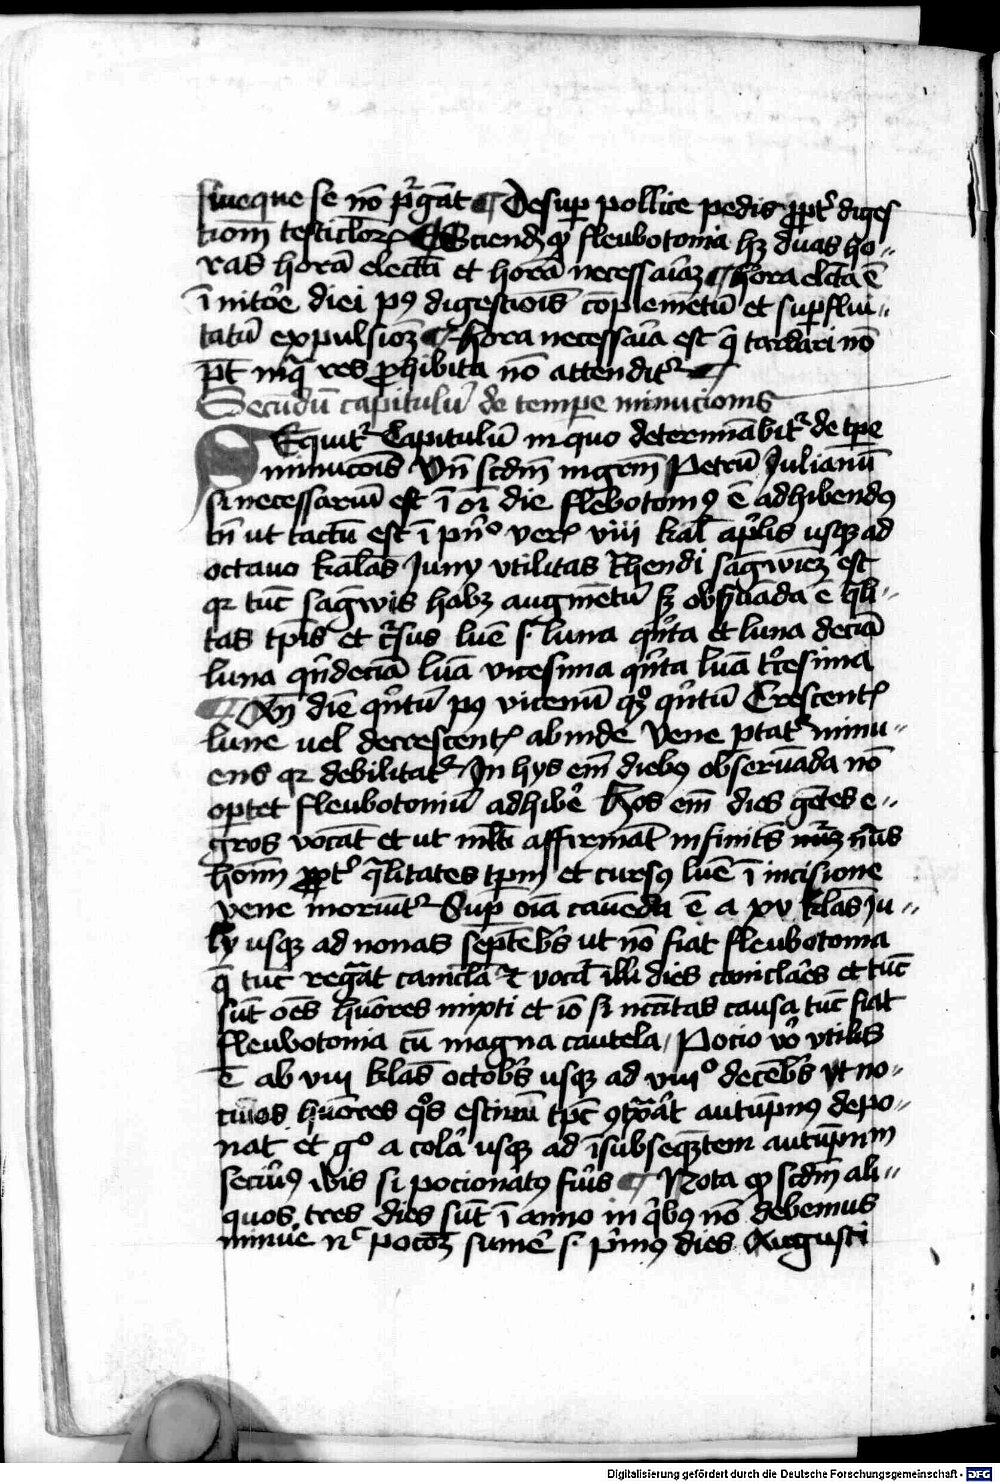 siueque se nō p̄gāt ¶ De sup pollice pedis ꝓpt̄ diges
tiom̄ testiclorꝝ ¶ Sciendꝫ ꝙ fleubotomia hꝫ duas ho-
ras horā electā et horā necessaiāꝫ ¶ hora elc̄ta ē
ī nitōe diei pꝰ digestiois cōplemētū et suꝑflui-
tatū expulsiōꝫ ¶ hora necessaīa est q̄ tardari nō
pt̄ inq̄ res ꝓhibita nō attendit᷑ ¶
Secūdū capitulū de tempe minucionis
SEquit᷑ Capitulū in quo determīabit᷑ de tpe
minucōis Vn̄ scdm̄ mgrm̄ Petrū Julianū
si necessariū est ī oī die flebotomꝰ ē adhibendꝰ
tn̄ ut tactū est ī pn̄º verꝭ viii kal̄ ap̄lis usqꝫ ad
octauo kal̄as Juny vtilitas t̄hendi sāgwīeꝫ est
qꝛ tūc sāgwis habꝫ augmētū sꝫ obẜuāda ē q̄li-
tas tp̄is et c̄sus lūe s. luna qn̄ta et luna deciā
luna qn̄deciā lūa vicesima qn̄ta lūa tͥcesima
¶ Xn̄ diē qn̄tū pꝰ vicenū qꝫ qn̄tū Crescentꝭ
lune uel decrescentꝭ abinde Vene ptat᷑ minu-
ens qꝛ debilitat᷑ In hys em̄ diebꝰ obseruāda nō
oꝑtet fleubotomiū adhibē᷑ Hos em̄ dies ḡtes e-
gros vocāt et ut ml̄ti affirmāt infinitꝭ nr̄aꝫ n̄rās
hoīm ꝓpt᷑ q̄litates tpm̄ et cursꝰ lūe ī incisione
vene moriūt᷑ Sup oīa cauēda ē a xv kl̄as Ju-
ly usqꝫ ad nonas septēbꝭs ut nō fiat fleubotomia
q̄ tūc regn̄āt canicl̄a et vocāt illi dies canicl̄āes et tūc
sūt oēs hūores mixti et iō si nc̄citas causa tūc fiat
fleubotomia cū magna cautela / Pocio vō vtilis
ē ab viii kl̄as octobꝭs usqꝫ ad viiiº decēbꝭs vt no-
ciuos hūores qͦs estiuū tp̄c ꝯgͣāt autūpnꝰ depo-
nat Et gº a colā usqꝫ ad īsubseqꝫtem autūpnm
seciꝰ ibis si pocionatꝰ fiūs ¶ Nota ꝙ scdm̄ ali-
quos tres dies sūt ī anno in qͥbꝰ nō debemus
minūe nͨ pocōꝫ sumē s. pͥmꝰ dies Augusti
Digitalisierung gefördert durch die Deutsche Forschungsgemeinschaft - DFG